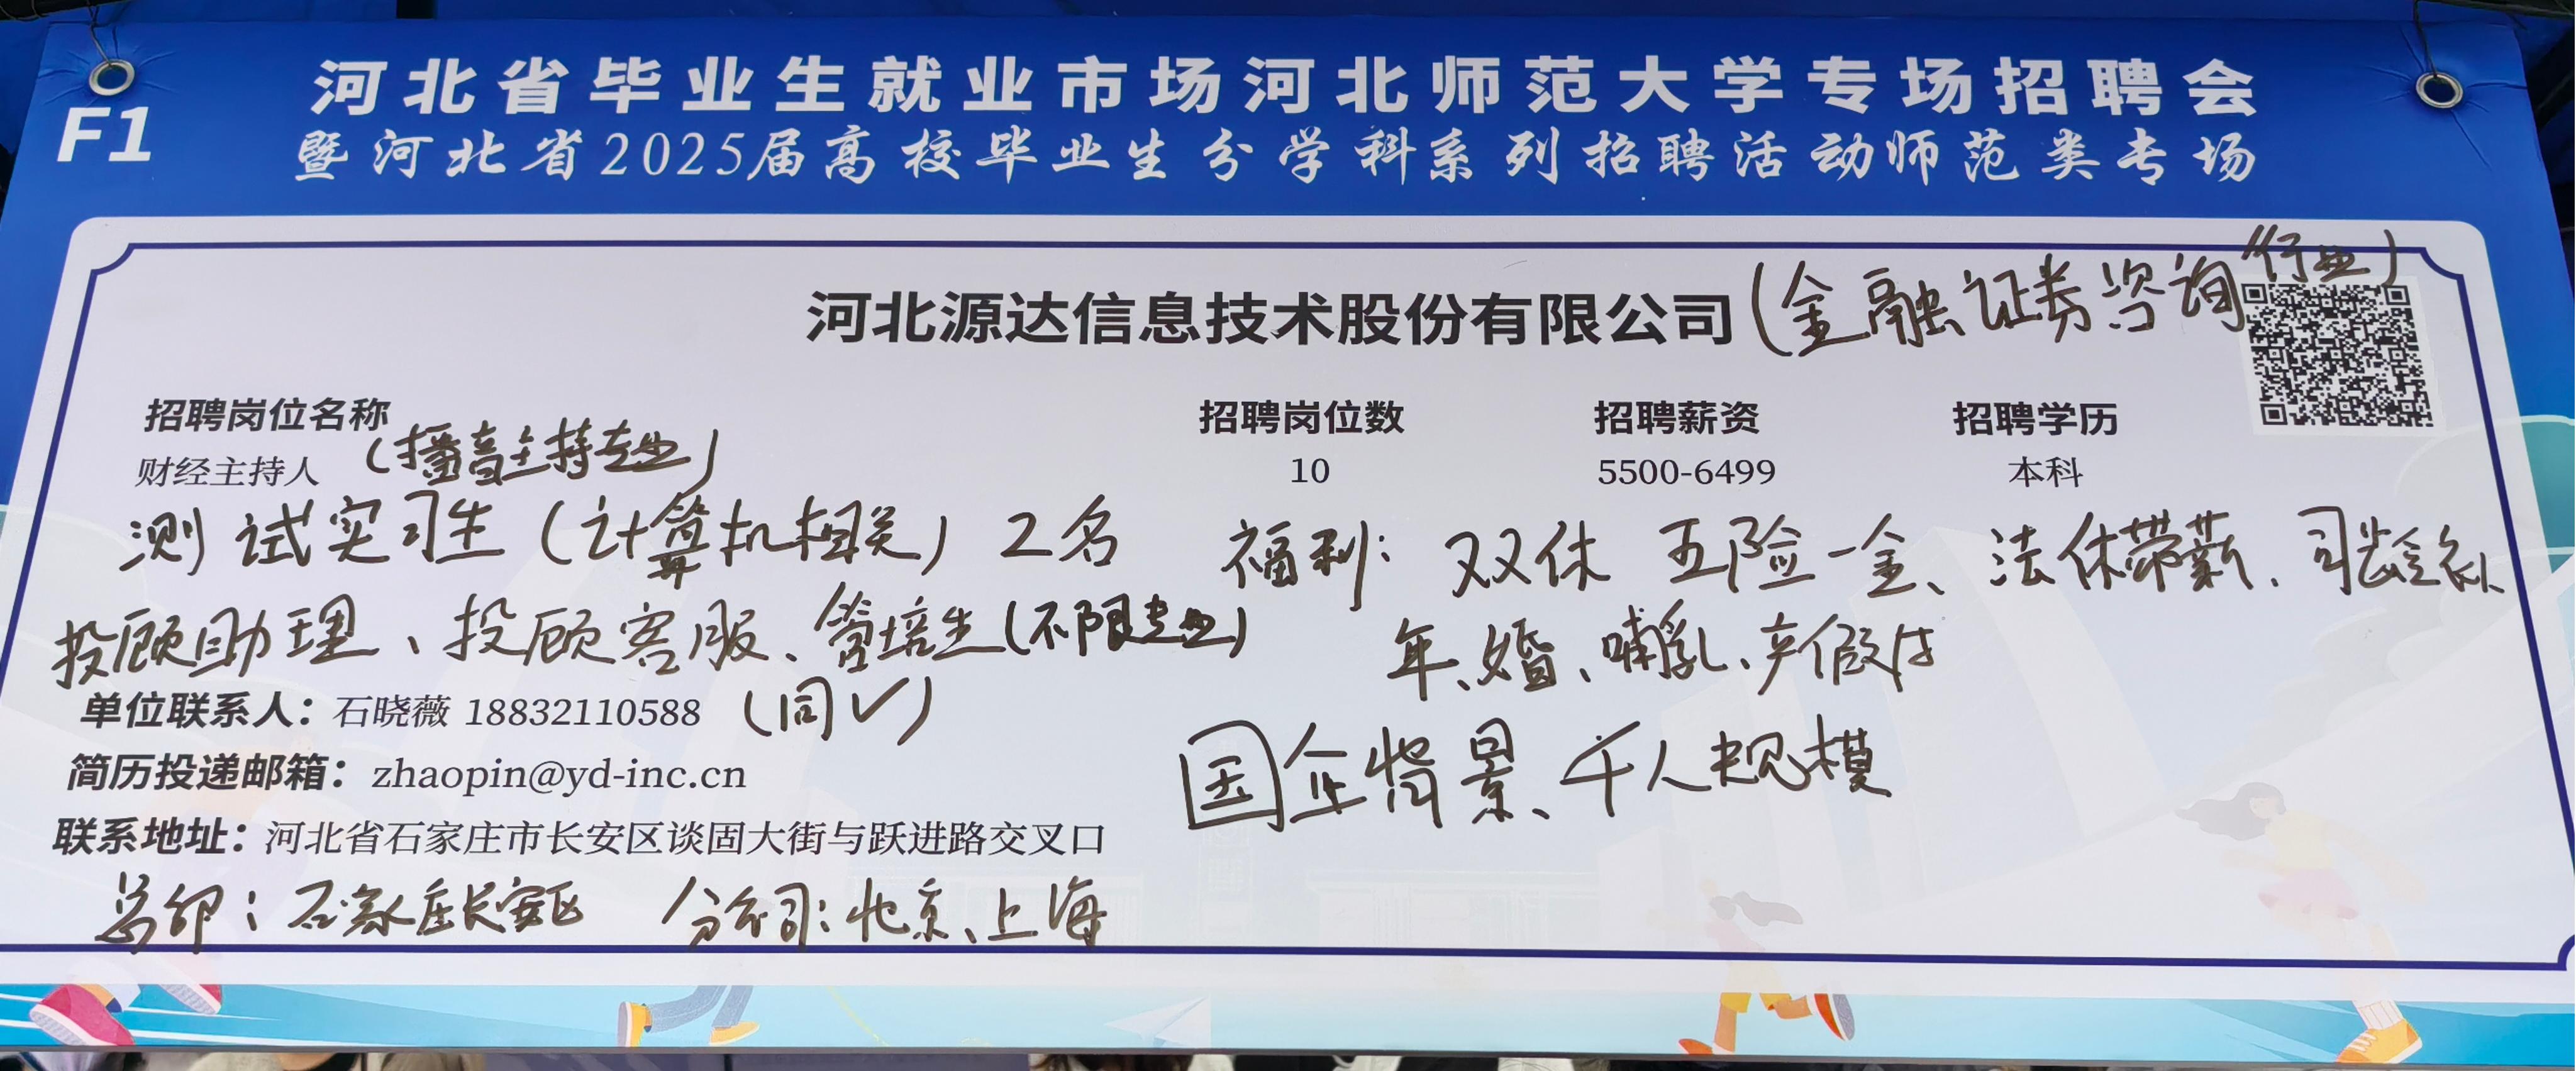 河北省毕业生就业市场河北师范大学专场招聘会
F1
暨河北省2025届高校毕业生分学科系列招聘活动师范类专场
河北源达信息技术股份有限公司(金融证券咨询行业)
招聘岗位名称 招聘岗位数 招聘薪资 招聘学历
财经主持人 (播音主持专业) 10 5500-6499 本科
测试实习生(计算机相关) 2名
投顾助理、投顾客服、管培生(不限专业)
福利: 双休 五险一金、法休带薪、司龄
年、婚、哺乳、产假
国企背景、千人规模
单位联系人：石晓薇 18832110588 (同V)
简历投递邮箱：zhaopin@yd-inc.cn
联系地址：河北省石家庄市长安区谈固大街与跃进路交叉口
总部: 石家庄长安区 分公司: 北京、上海